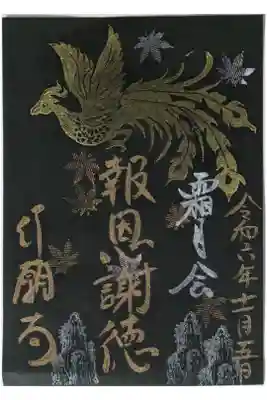 令和六年十一月五日
霜月会
報恩謝徳